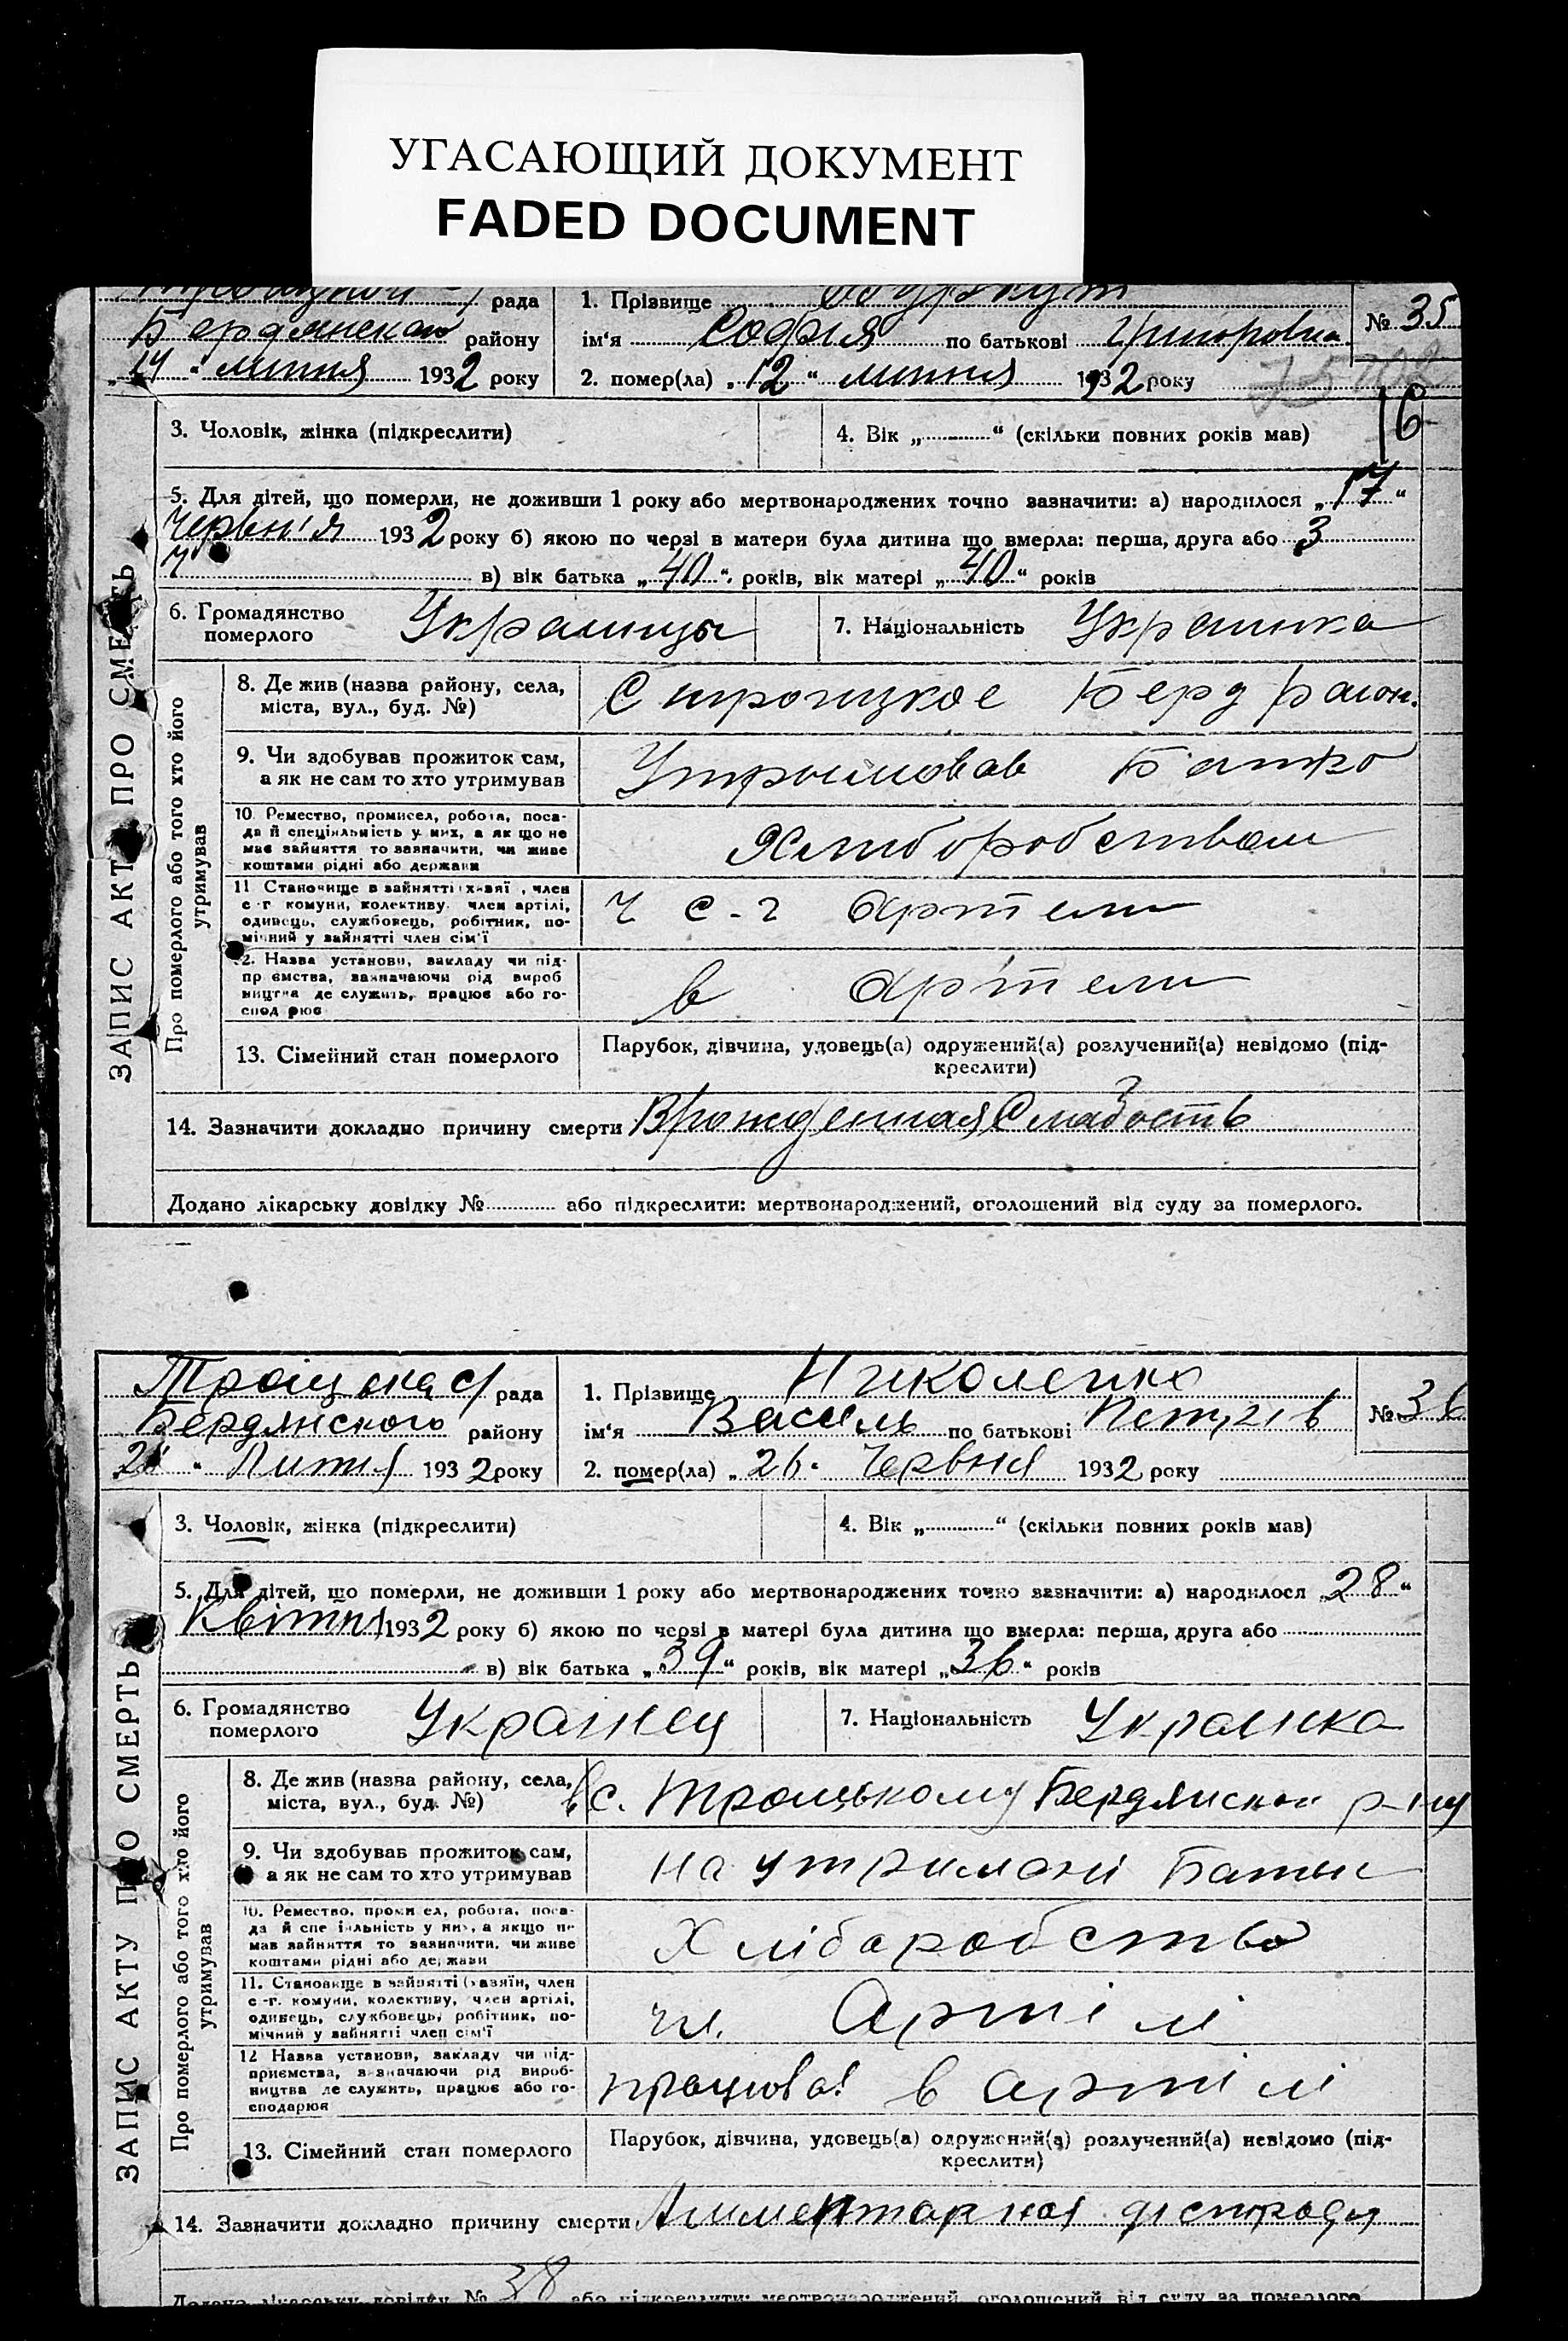 УГАСАЮЩИЙ ДОКУМЕНТ
FADED DOCUMENT
рада
1. Прізвище
№ 35
Бердянского району
ім'я София по батькові Григоровна
"14" липня 1932 року
2. помер(ла) "12" липня 1932 року
16
3. Чоловік, жінка (підкреслити)
4. Вік „ “ (скільки повних років мав)
5. Для дітей, що померли, не доживши 1 року або мертвонароджених точно зазначити: а) народилося „17“
Червн'я 1932 року б) якою по черзі в матери була дитина що вмерла: перша, друга або 3
в) вік батька „40“ років, вік матері „40“ років
6. Громадянство померлого
7. Національність Украинка
8. Де жив (назва району, села,
міста, вул., буд. №)
С Троицкое Берд район.
9. Чи здобував прожиток сам,
а як не сам то хто утримував
Утримовав Батько
10. Ремество, промисел, робота, поса-
да й спеціяльність у них, а як що не
має зайняття то зазначити, чи живе
коштами рідні або держави
11 Становище в зайнятті (хазяї , член
с-г комуни, колективу, член артілі,
одинець, службовець, робітник, по-
мічний у зайнятті член сім'ї
ч с-г артели
12. Назва установи, закладу чи під-
приємства, зазначаючи рід вироб
ництва де служить, працює або го-
сподарює
в артели
13. Сімейний стан померлого
Парубок, дівчина, удовець(а) одружений(а) розлучений(а) невідомо (під-
креслити)
14. Зазначити докладно причину смерти Врожденная Слабость
Додано лікарську довідку № або підкреслити: мертвонароджений, оголошений від суду за померлого.
ЗАПИС АКТУ ПРО СМЕРТЬ
Про померлого або того хто його
утримував
Троицька с/рада
1. Прізвище Николенко
№ 36
Бердянского району
ім'я Василь по батькові
Липня 1932 року
2. помер(ла) „26“ Червня 1932 року
3. Чоловік, жінка (підкреслити)
4. Вік „ “ (скільки повних років мав)
5. Для дітей, що померли, не доживши 1 року або мертвонароджених точно зазначити: а) народилося „28“
Квітня 1932 року б) якою по черзі в матері була дитина що вмерла: перша, друга або
в) вік батька „39“ років, вік матері „36“ років
6. Громадянство померлого Украінец
7. Національність Украинка
8. Де жив (назва району, села,
міста, вул., буд. №)
в с. Троицькому Бердянском р-ну
9. Чи здобував прожиток сам,
а як не сам то хто утримував
на утримані
10. Ремество, промисел, робота, поса-
да й спеціяльність у них, а якщо не
має зайняття то зазначити, чи живе
коштами рідні або держави
Хліборобство
11. Становище в зайнятті (хазяїн, член
с-г. комуни, колективу, член артілі,
одинець, службовець, робітник, по-
мічний у зайнятті член сім'ї
чл. Артілі
12 Назва установи, закладу чи під-
приємства, зазначаючи рід вироб-
ництва де служить, працює або го-
сподарює
працював в артілі
13. Сімейний стан померлого
Парубок, дівчина, удовець(а) одружений(а) розлучений(а) невідомо (під-
креслити)
14. Зазначити докладно причину смерти Алиментарная
Додано лікарську довідку № 38 або підкреслити: мертвонароджений, оголошений від суду за померлого
ЗАПИС АКТУ ПРО СМЕРТЬ
Про померлого або того хто його
утримував